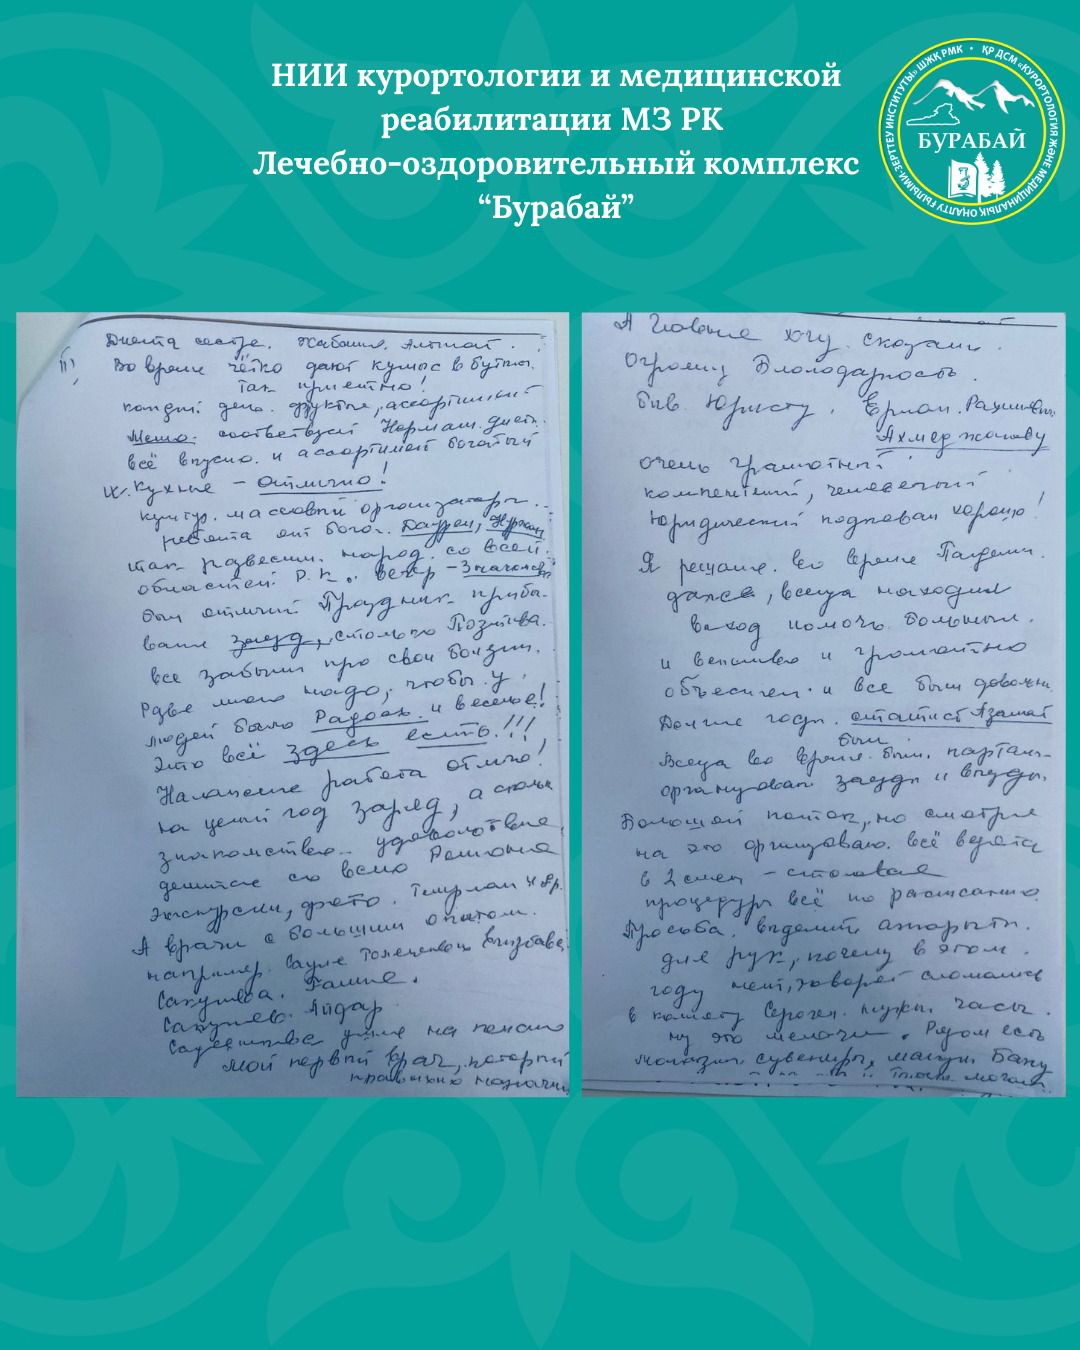 НИИ курортологии и медицинской
реабилитации МЗ РК
Лечебно-оздоровительный комплекс
“Бурабай”
ҚР ДСМ «КУРОРТОЛОГИЯ ЖӘНЕ МЕДИЦИНАЛЫҚ ОҢАЛТУ ҒЫЛЫМИ-ЗЕРТТЕУ ИНСТИТУТЫ» ШЖҚ РМК
БУРАБАЙ
Диета сестре.
Во время чётко дают кумыс в бутыл.
так приятно!
каждый день. фрукты, ассортимент
Меню. соответствует Нормам. диет.
всё вкусно. и ассортимент богатый
Кухня – отлично!
культур. массовый организаторы...
ребята от бога. Даурен, Нуржан
так развесели. народ. со всей.
областей Р.К. вечер – Знакомств
был отличный Праздник прибы-
вали заезд, столько Позитива.
все забыли про свои болезни.
Разве много надо, чтобы у.
людей было Радость и веселье!
Это всё здесь есть.!!!
Налажена работа отлично!
на целый год заряд, а сколько
знакомство удовольствие
делится со всем
экскурсии, фото.
А врачи с большим опытом.
например. Сауле
Галия.
Айдар
ушла на пенсию
мой первый врач, который
правильно назначил
А Главное хочу. сказать.
Огромную Благодарность.
быв. Юристу.
Ахмеджанову
очень грамотный
компетентный, человечный
Юридический подкован хорошо!
Я решала. во время Пандеми.
даже, всегда находил
выход помочь больным.
и вежливо и грамотно
объяснял. и все были довольны.
Долгие годы. статист Азамат
был.
Всегда во время были.
организовал заезды и выезды.
Большой поток, но смотря
на это организовано. всё ведётся
в 2 смен – столовая
процедуры всё по расписанию
Просьба. выделить
для рук, почему в этом.
году нет, говорят сломались
в комнату нужны часы.
ну это мелочи. Рядом есть
магазин. сувениры,